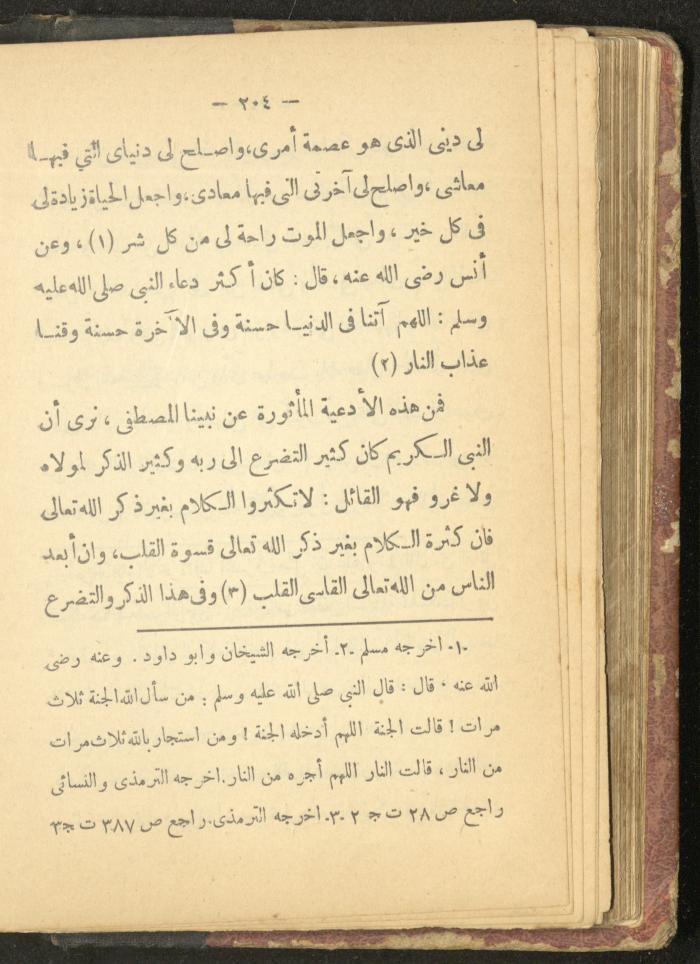 — ٢٠٤ —
لى دينى الذى هو عصمة أمرى، واصلح لى دنياى التي فيها
معاشى، واصلح لى آخرتى التى فيها معادى، واجعل الحياة زيادة لى
فى كل خير، واجعل الموت راحة لى من كل شر (١)، وعن
أنس رضى الله عنه، قال: كان أكثر دعاء النبى صلى الله عليه
وسلم: اللهم آتنا فى الدنيا حسنة وفى الآخرة حسنة وقنا
عذاب النار (٢)
فمن هذه الأدعية المأثورة عن نبينا المصطفى، نرى أن
النبى الكريم كان كثير التضرع الى ربه وكثير الذكر لمولاه
ولا غرو فهو القائل: لا تكثروا الكلام بغير ذكر الله تعالى
فان كثرة الكلام بغير ذكر الله تعالى قسوة القلب، وان أبعد
الناس من الله تعالى القاسى القلب (٣) وفى هذا الذكر والتضرع
-١- اخرجه مسلم -٢- أخرجه الشيخان وابو داود. وعنه رضى
الله عنه. قال: قال النبى صلى الله عليه وسلم: من سأل الله الجنة ثلاث
مرات! قالت الجنة اللهم أدخله الجنة! ومن استجار بالله ثلاث مرات
من النار، قالت النار اللهم أجره من النار. اخرجه الترمذى والنسائى
راجع ص ٢٨ ت ج ٢ -٣- اخرجه الترمذى. راجع ص ٣٨٧ ت ج ٣